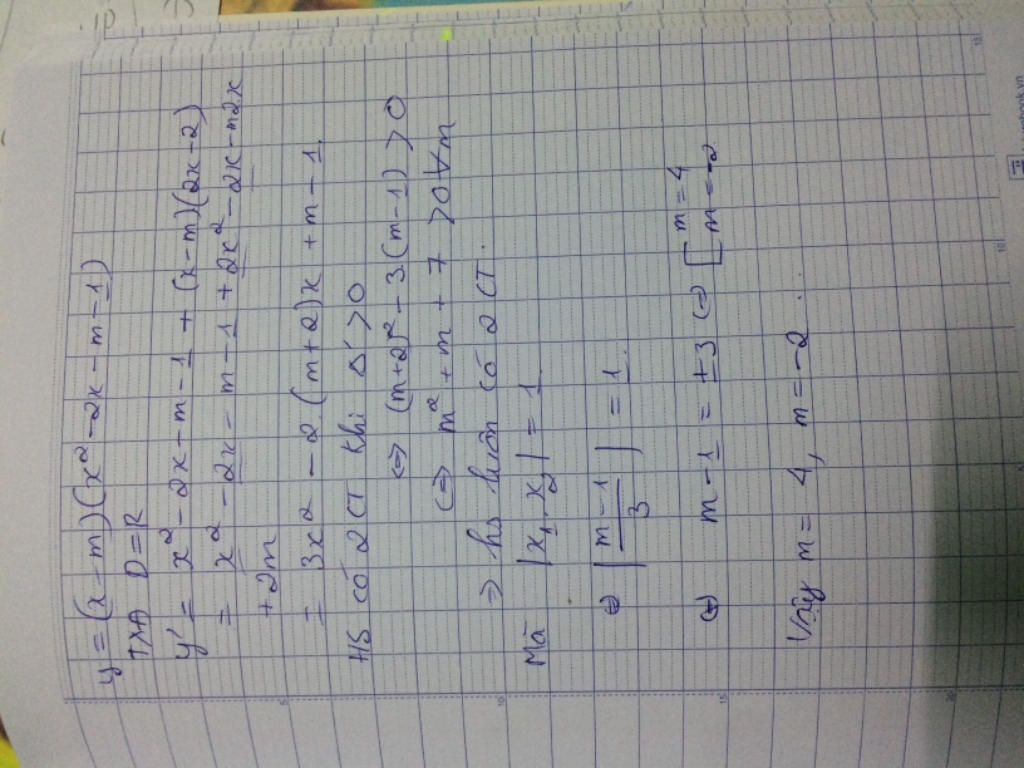 y = (x - m)(x² - 2x - m - 1)
TXĐ D = R
y' = x² - 2x - m - 1 + (x - m)(2x - 2)
= x² - 2x - m - 1 + 2x² - 2x - m2x
+ 2m
= 3x² - 2(m+2)x + m - 1.
HS có 2 CT khi Δ' > 0
⇔ (m+2)² - 3.(m-1) > 0
⇔ m² + m + 7 > 0 ∀m
⇒ hs luôn có 2 CT.
Mà |x₁.x₂| = 1
⇔ |(m-1)/3| = 1.
⇔ m - 1 = ±3 ⇔ [ m = 4
m = -2
Vậy m = 4, m = -2.
5
10
15
20
10
15